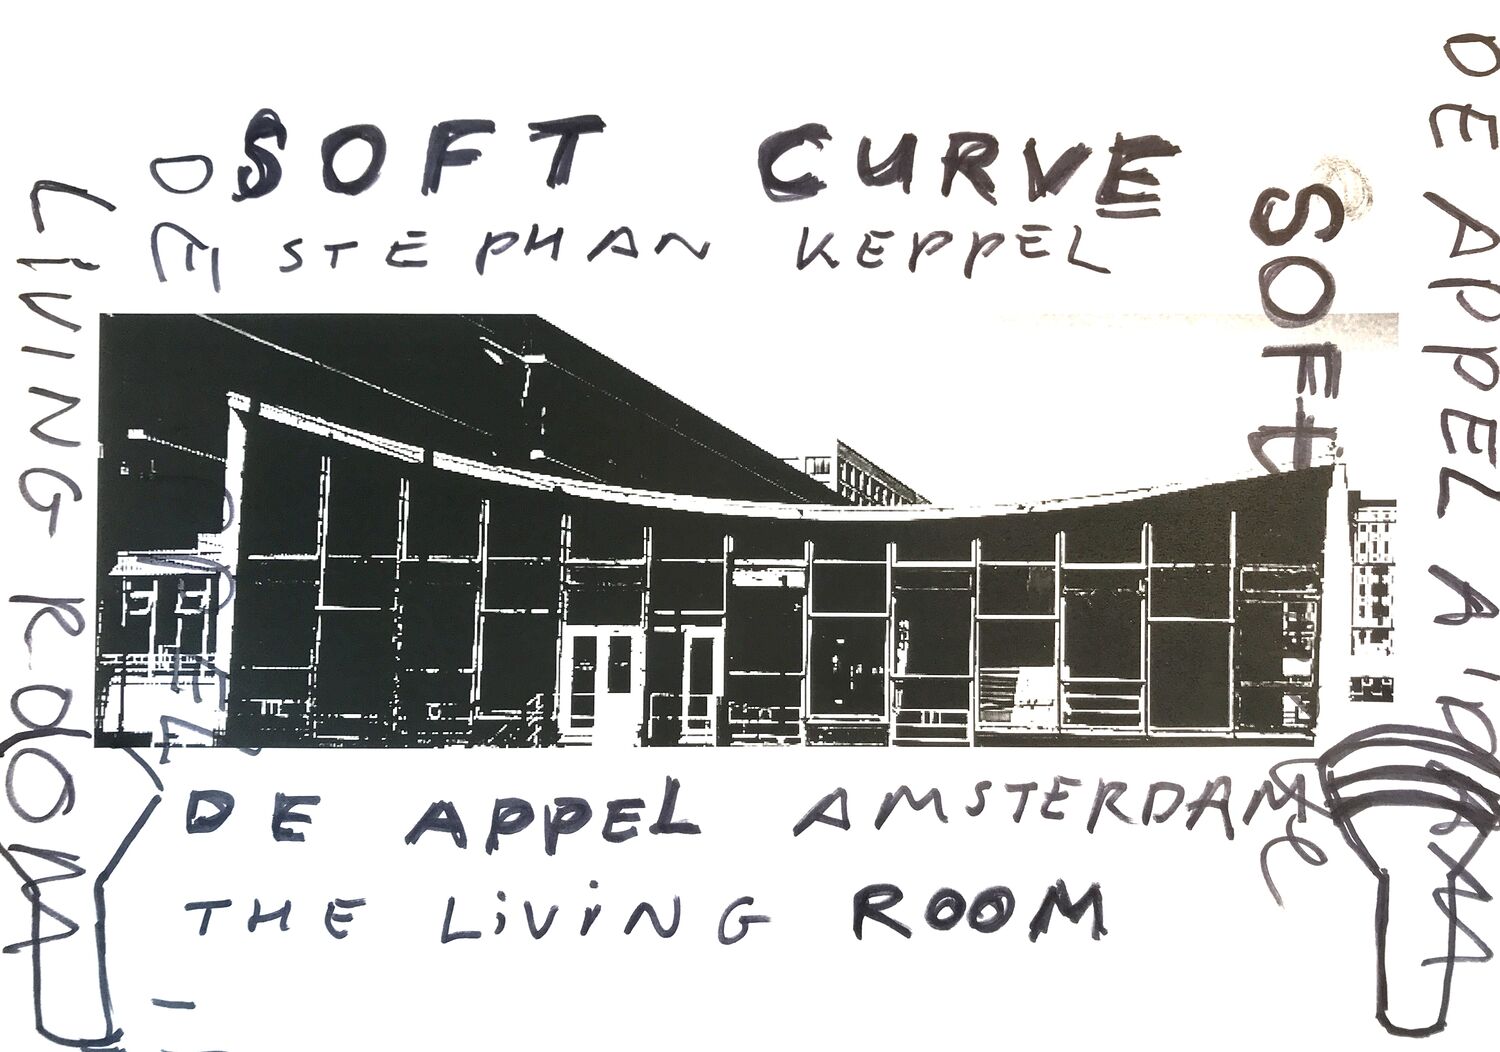 SOFT CURVE
STEPHAN KEPPEL
DE APPEL AMSTERDAM
THE LiViNG ROOM
LiVING ROOM
DE APPEL
SOFT
DE APPEL A'DAM